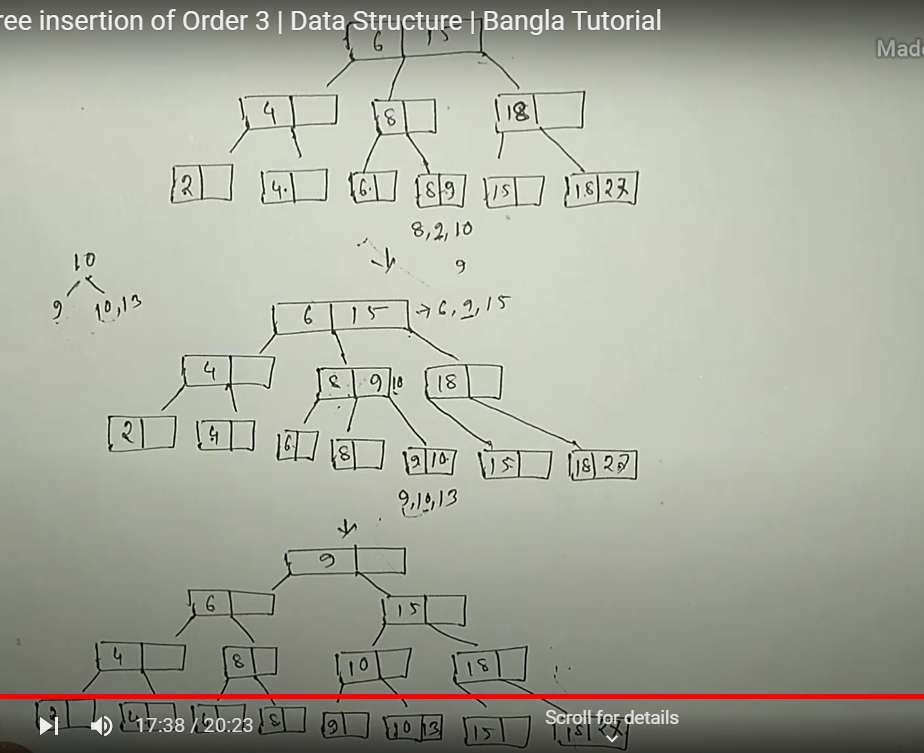 ree insertion of Order 3 | Data Structure | Bangla Tutorial
Made
6 15
4 8 18
2 4 6 8 9 15 18 27
8, 2, 10
9
10
9 10, 13
6 15 → 6, 9, 15
4 8 9 10 18
2 4 6 8 9 10 15 18 27
9, 10, 13
9
6 15
4 8 10 18
2 4 8 9 10 13 15 18 27
17:38 / 20:23
Scroll for details